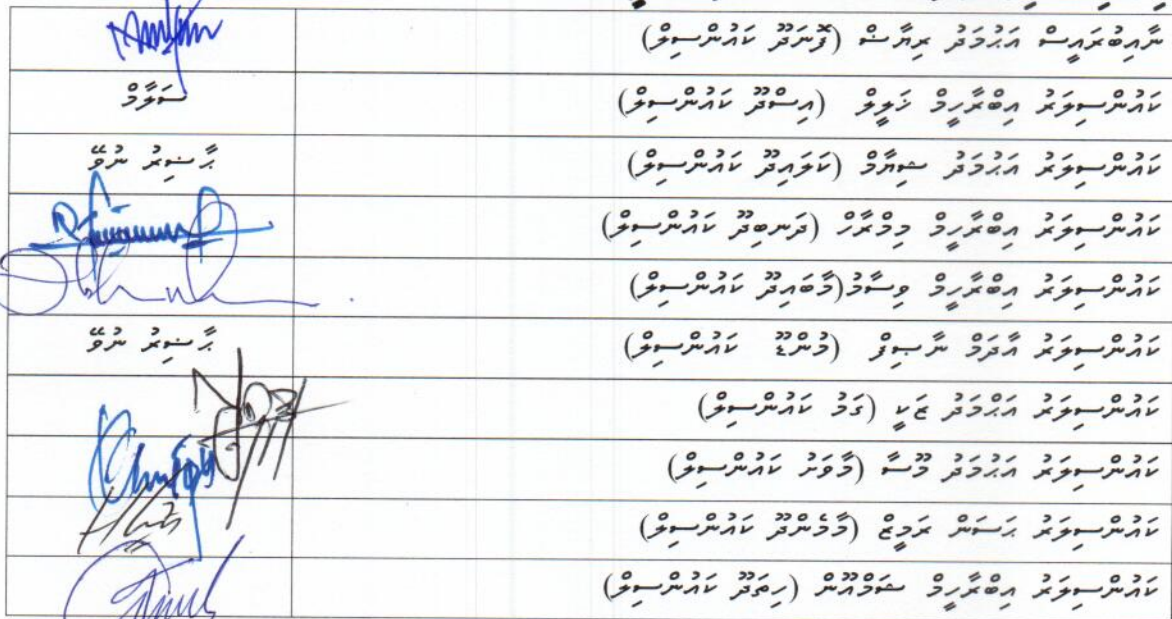 ނާއިބުރައީސް އަޙުމަދު ރިޔާޟް (ފޮނަދޫ ކައުންސިލް)
ކައުންސިލަރު އިބްރާހިމް ޚަލީލް (އިސްދޫ ކައުންސިލް) ސަލާމް
ކައުންސިލަރު އަޙުމަދު ޝިޔާމް (ކަލައިދޫ ކައުންސިލް) ޙާޟިރު ނުވޭ
ކައުންސިލަރު އިބްރާހީމް މިމްރާހް (ދަނބިދޫ ކައުންސިލް)
ކައުންސިލަރު އިބްރާހީމް ވިސާމު(މާބައިދޫ ކައުންސިލް)
ކައުންސިލަރު އާދަމް ނާޞިފް (މުންޑޫ ކައުންސިލް) ޙާޟިރު ނުވޭ
ކައުންސިލަރު އަޙްމަދު ޒަކީ (ގަމު ކައުންސިލް)
ކައުންސިލަރު އަޙުމަދު މޫސާ (މާވަށު ކައުންސިލް)
ކައުންސިލަރު ޙަސަން ރަމީޒް (މާމެންދޫ ކައުންސިލް)
ކައުންސިލަރު އިބްރާހީމް ޝަމްއޫން (ހިތަދޫ ކައުންސިލް)